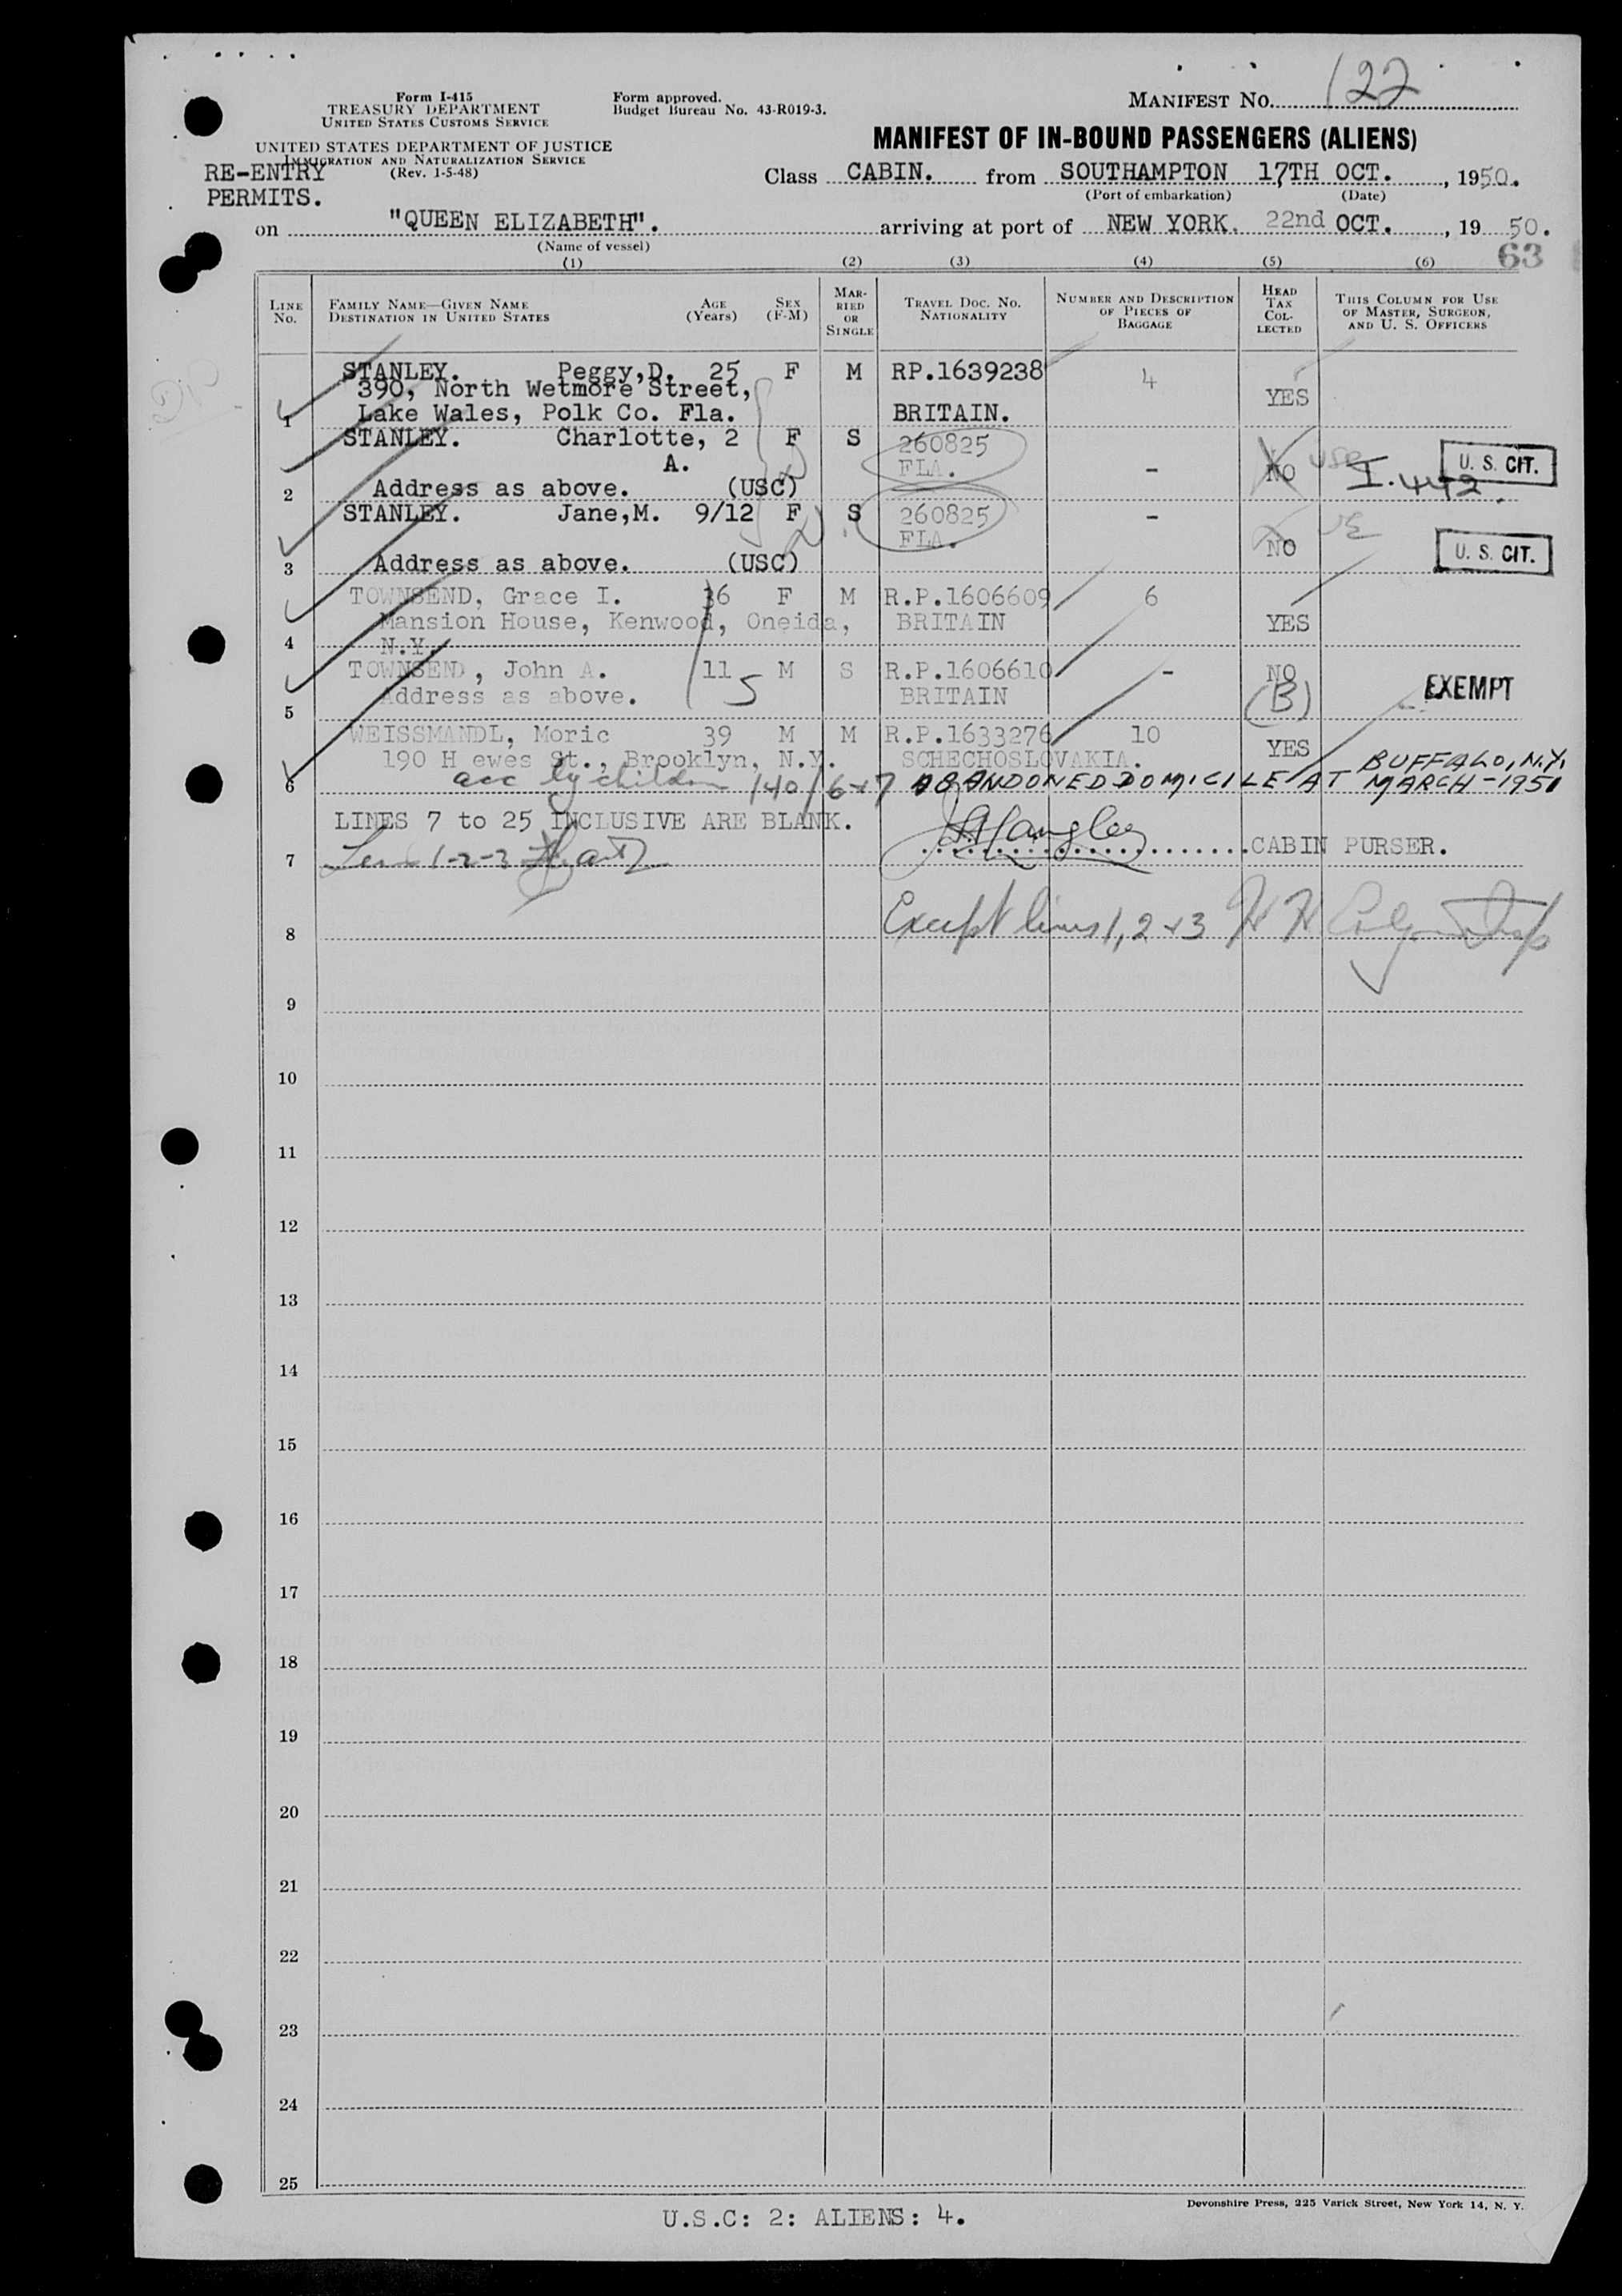 Form I-415
TREASURY DEPARTMENT
UNITED STATES CUSTOMS SERVICE
Form approved.
Budget Bureau No. 43-R019-3.
MANIFEST NO. 122
UNITED STATES DEPARTMENT OF JUSTICE
IMMIGRATION AND NATURALIZATION SERVICE
(Rev. 1-5-48)
RE-ENTRY
PERMITS.
MANIFEST OF IN-BOUND PASSENGERS (ALIENS)
Class CABIN. from SOUTHAMPTON 17TH OCT. , 1950.
(Port of embarkation) (Date)
on "QUEEN ELIZABETH". arriving at port of NEW YORK. 22nd OCT. , 19 50.
(Name of vessel)
63
(1) (2) (3) (4) (5) (6)
LINE NO.
FAMILY NAME—GIVEN NAME
DESTINATION IN UNITED STATES
AGE (Years)
SEX (F-M)
MARRIED OR SINGLE
TRAVEL DOC. NO.
NATIONALITY
NUMBER AND DESCRIPTION OF PIECES OF BAGGAGE
HEAD TAX COLLECTED
THIS COLUMN FOR USE OF MASTER, SURGEON, AND U. S. OFFICERS
STANLEY. Peggy,D. 25 F M RP.1639238 4
390, North Wetmore Street, YES
1 Lake Wales, Polk Co. Fla. BRITAIN.
STANLEY. Charlotte, 2 F S 260825
A. FLA. - NO USC U. S. CIT.
2 Address as above. (USC) I.442.
STANLEY. Jane,M. 9/12 F S 260825 -
FLA. NO U. S. CIT.
3 Address as above. (USC)
TOWNSEND, Grace I. 36 F M R.P.1606609 6
Mansion House, Kenwood, Oneida, BRITAIN YES
4 N.Y.
TOWNSEND, John A. 11 M S R.P.1606610 - NO
5 Address as above. 5 BRITAIN (B) EXEMPT
WEISSMANDL, Moric 39 M M R.P.1633276 10
190 H ewes St., Brooklyn, N.Y. SCHECHOSLOVAKIA. YES BUFFALO, N.Y.
6 acc by children 140/6+7 ABANDONED DOMICILE AT MARCH-1951
LINES 7 to 25 INCLUSIVE ARE BLANK.
7 1-2-3 CABIN PURSER.
8 Except lines 1, 2 + 3
9
10
11
12
13
14
15
16
17
18
19
20
21
22
23
24
25
Devonshire Press, 225 Varick Street, New York 14, N. Y.
U.S.C: 2: ALIENS: 4.